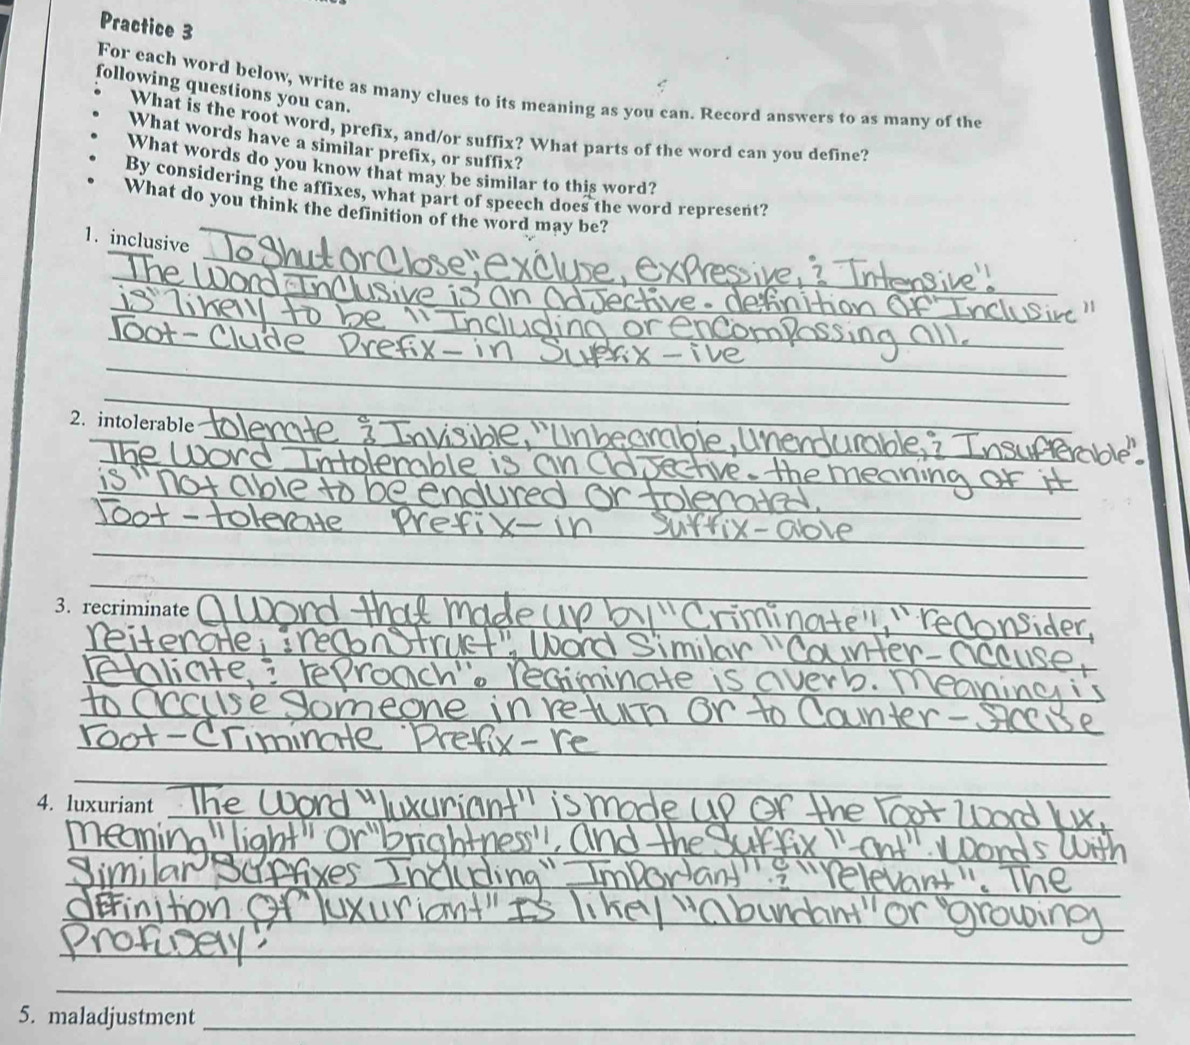 Practice 3
For each word below, write as many clues to its meaning as you can. Record answers to as many of the
following questions you can.
• What is the root word, prefix, and/or suffix? What parts of the word can you define?
• What words have a similar prefix, or suffix?
• What words do you know that may be similar to this word?
• By considering the affixes, what part of speech does the word represent?
• What do you think the definition of the word may be?
1. inclusive To Shut or Close", exclude, expressive, & Intensive".
The word Inclusive is an adjective. definition of "Inclusive"
is likely to be "Including or encompassing all.
root - Clude Prefix - in Suffix - ive
2. intolerable tolerate & Invisible, "unbearable, unendurable, & Insufferable".
The word Intolerable is an adjective. the meaning of it
is "not able to be endured or tolerated.
root - tolerate Prefix - in Suffix - able
3. recriminate a word that made up by "Criminate", "reconsider,
reiterate, & reconstruct". word Similar "Counter-accuse,
retaliate, & reproach". reciminate is a verb. Meaning is
to accuse someone in return or to Counter -
root - Criminate Prefix - re
4. luxuriant The word "luxuriant" is made up of the root word lux,
meaning "light" or "brightness", and the Suffix "-ant". words with
Similar Suffixes Including "Important" & "relevant". The
definition of "luxuriant" Is likely "abundant" or "growing
Profusely".
5. maladjustment